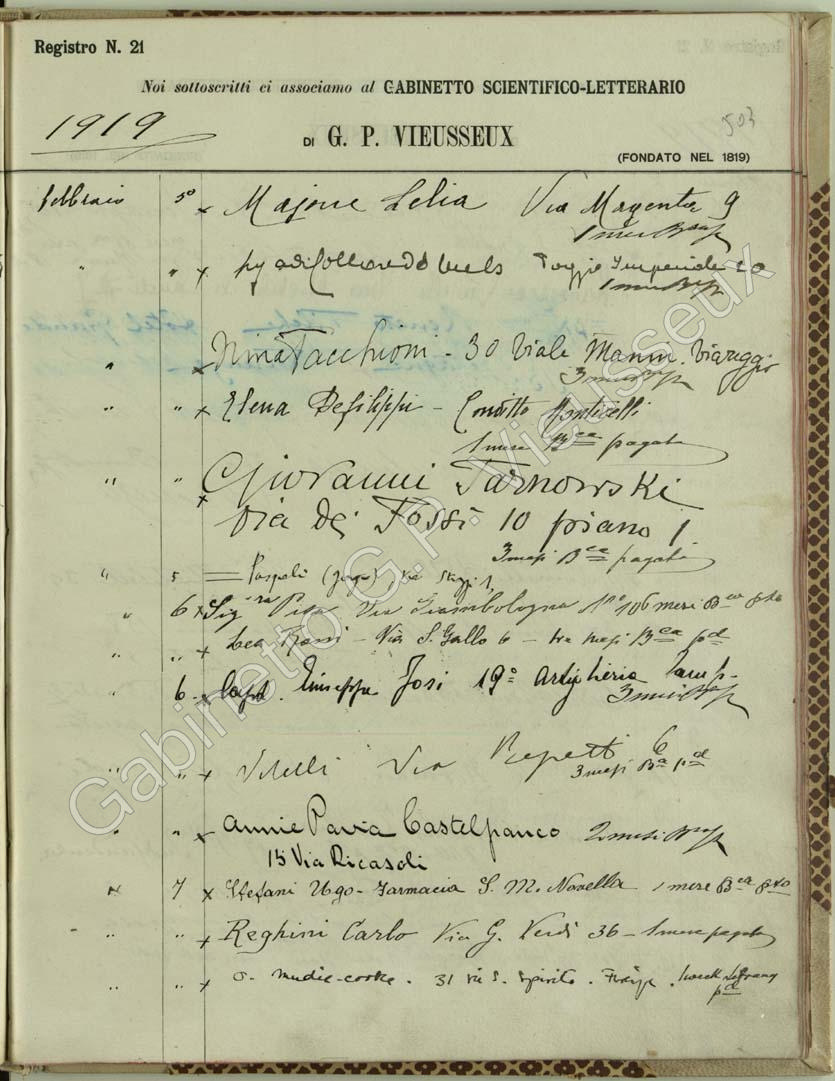 Registro N. 21
Noi sottoscritti ci associamo al GABINETTO SCIENTIFICO-LETTERARIO
503
1919
DI G. P. VIEUSSEUX
(FONDATO NEL 1819)
Febbraio 5° x Majone Lelia Via Magenta 9
" " x Poggio Imperiale
" x Nina Tacchioni - 30 Viale Manin. Viareggio
3 mesi
" " x Elena Defilippi - Condotto Monticelli
1 mese Bca pagata
" " x Giovanni Tarnowski
via dei Fossi 10 piano 1
3 mesi Bca pagata
" 5 Paspoli
" 6 x Sigra Pisa Via Giambologna
" " x Lea - Via S. Gallo 6 - tre mesi Bca pd
" 6 - Capt. Giuseppe Josi 19° Artiglieria Camp.
3 mesi
" " x Vitelli Via Repetti 6
3 mesi Ba pd
" " x Annie Pavia Castelfranco 2 mesi
15 Via Ricasoli
" 7 x Stefani Ugo - Farmacia S. M. Novella 1 mese Bca
" " x Reghini Carlo Via G. Verdi 36 - 1 mese pagato
" " x mudie-cooke. 31 via S. Spirito.
pd
Gabinetto G.P. Vieusseux